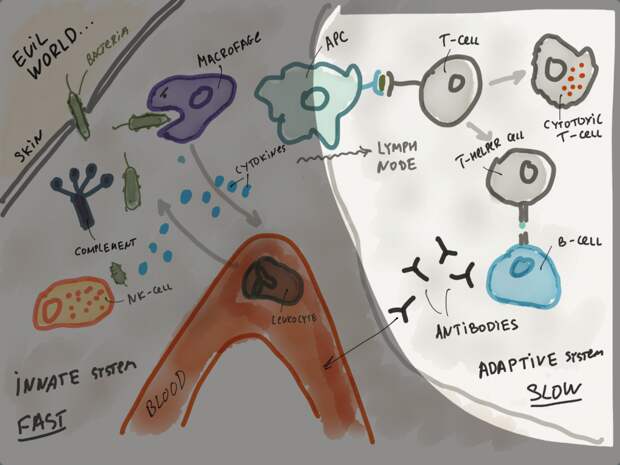 EVIL
WORLD...
BACTERIA
SKIN
MACROFAGE
APC
T-CELL
CYTOTOXIC
T-CELL
T-HELPER CELL
CYTOKINES
LYMPH
NODE
COMPLEMENT
NK-CELL
LEUKOCYTE
B-CELL
ANTIBODIES
BLOOD
INNATE SYSTEM
FAST
ADAPTIVE SYSTEM
SLOW